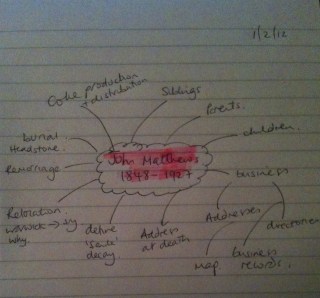 1/2/12
Coke production
+ distribution
Siblings
Parents.
children.
burial.
Headstone.
Remarriage
John Matthews
1848-1927
business
Relocation
warwick →
why.
define
'senile'
decay.
Address
at death
Addresses
directories
map
business
records.